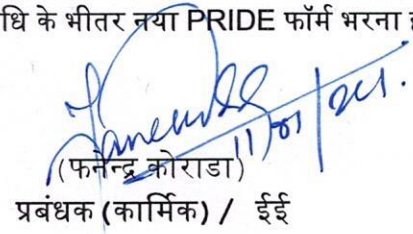 धि के भीतर नया PRIDE फॉर्म भरना
11/01/
(फनेन्द्र कोराडा)
प्रबंधक (कार्मिक) / ईई